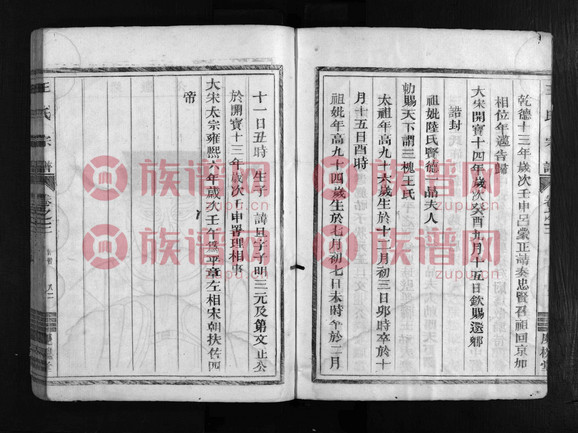 乾德十三年歲次壬申呂蒙正請奏忠賢召祖回京加
相位年邁告歸
大宋開寶十四年歲次癸酉九月十五日欽賜還鄉
誥封
祖妣陸氏賢德一品夫人
勅賜天下謂三槐王氏
太祖年高九十六歲生於十二月初三日卯時卒於十
月十五日酉時
祖妣年高九十四歲生於七月初七日未時卒於三月
十一日丑時 生子 諱旦字子明三元及第文正公
於開寶十三年歲次壬申署理相事
大宋太宗雍熙六年歲次壬午爲平章左相宋朝扶佐四
帝
王氏宗譜
卷之三
族谱网 zupu.cn
族谱网 zupu.cn
族谱网 zupu.cn
族谱网 zupu.cn